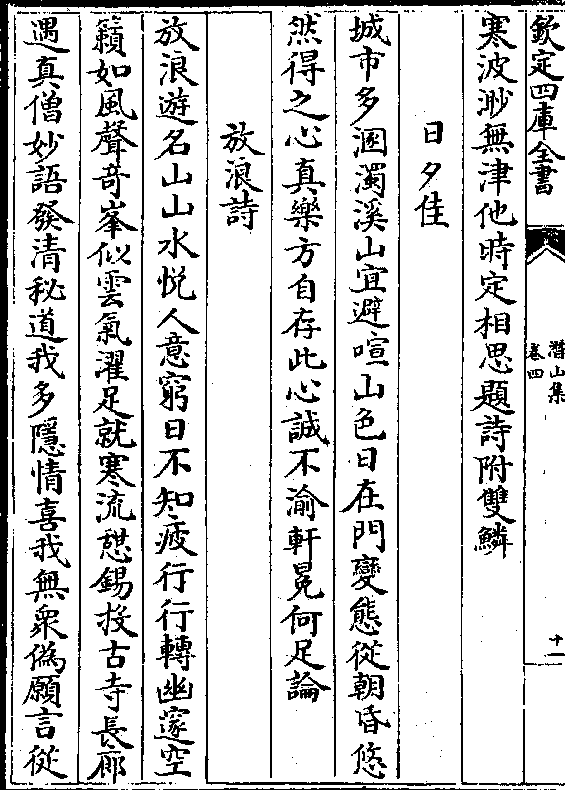 欽定四庫全書
潛山集
卷四
十一
寒波渺無津他時定相思題詩附雙鱗
日夕佳
城市多溷濁溪山宜避喧山色日在門變態從朝昏悠
然得之心真樂方自存此心誠不渝軒冕何足論
放浪詩
放浪遊名山山水悅人意窮日不知疲行行轉幽邃空
籟如風聲奇峯似雲氣濯足就寒流憇錫投古寺長廊
遇真僧妙語發清秘道我多隱情喜我無衆偽願言從